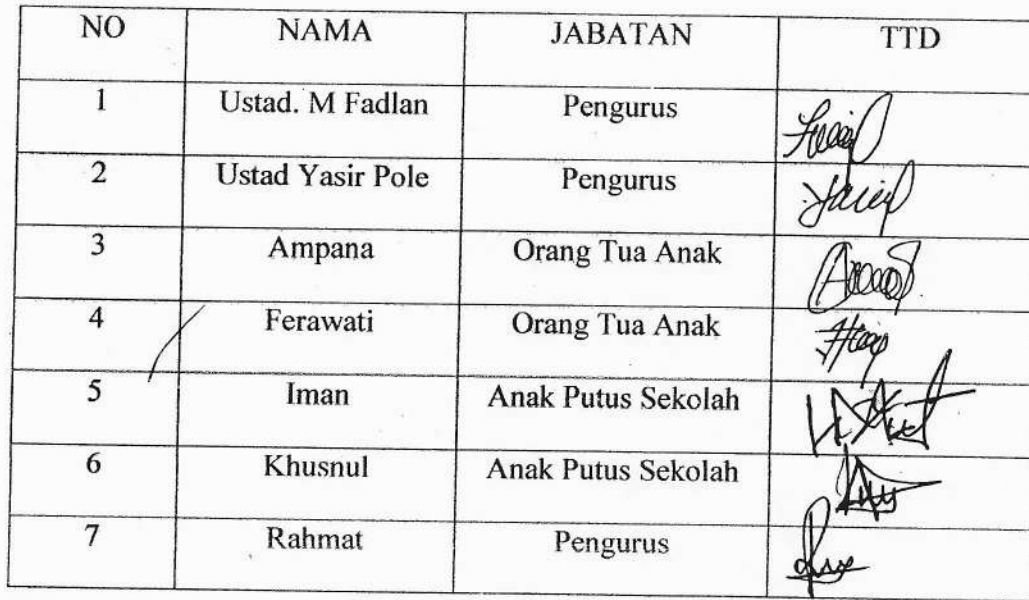 NO NAMA JABATAN TTD
1 Ustad. M Fadlan Pengurus
2 Ustad Yasir Pole Pengurus
3 Ampana Orang Tua Anak
4 Ferawati Orang Tua Anak
5 Iman Anak Putus Sekolah
6 Khusnul Anak Putus Sekolah
7 Rahmat Pengurus